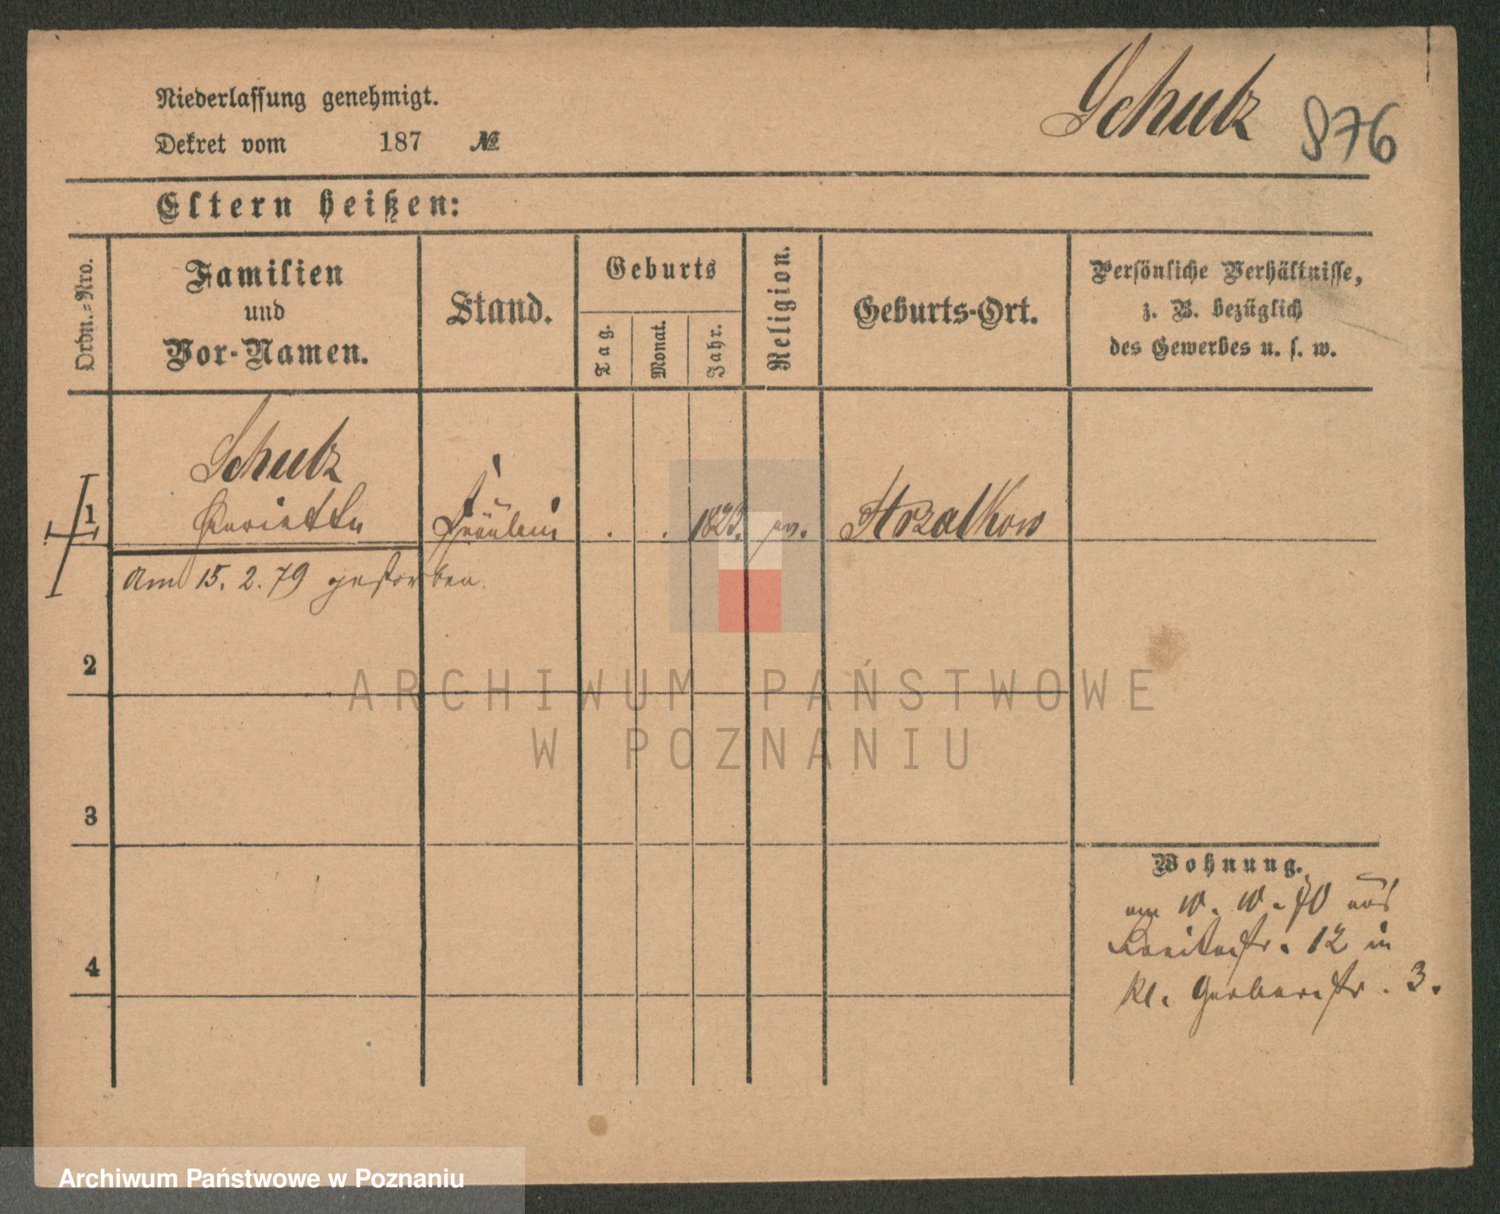 Niederlassung genehmigt.
Schulz 876
Dekret vom 187 №
Eltern heißen:
Ordn.-Nro.
Familien
und
Vor-Namen.
Stand.
Geburts
Tag.
Monat.
Jahr.
Religion.
Geburts-Ort.
Persönliche Verhältnisse,
z. B. bezüglich
des Gewerbes u. s. w.
Schulz
1 Fräulein . . 1823. ev. Strzalkow
am 15. 2. 79 gestorben.
2
3
4
Wohnung.
am 10. 10. 70 aus
12 in
kl. Gerberstr. 3.
ARCHIWUM PAŃSTWOWE
W POZNANIU
Archiwum Państwowe w Poznaniu